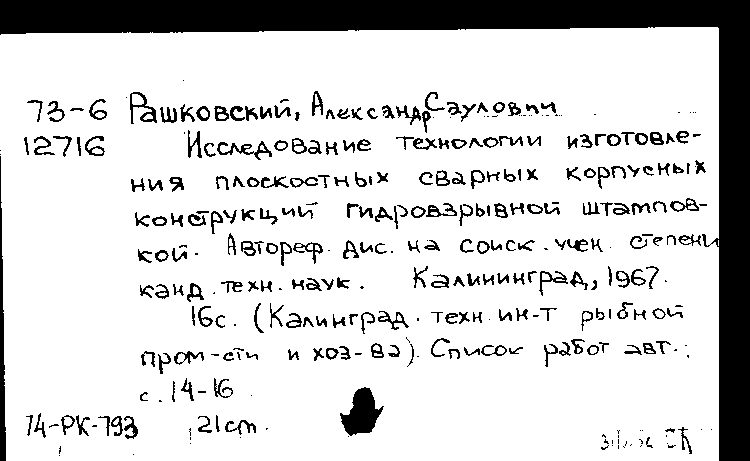 73-6 Рашковский, Александр Саулович
12716 Исследование технологии изготовле-
ния плоскостных сварных корпусных
конструкций гидровзрывной штампов-
кой. Автореф. дис. на соиск. учен. степени
канд. техн. наук. Калининград, 1967.
16с. (Калинград. техн. ин-т рыбной
пром-сти и хоз-ва). Список работ авт.:
с. 14-16.
74-РК-793 21cm.